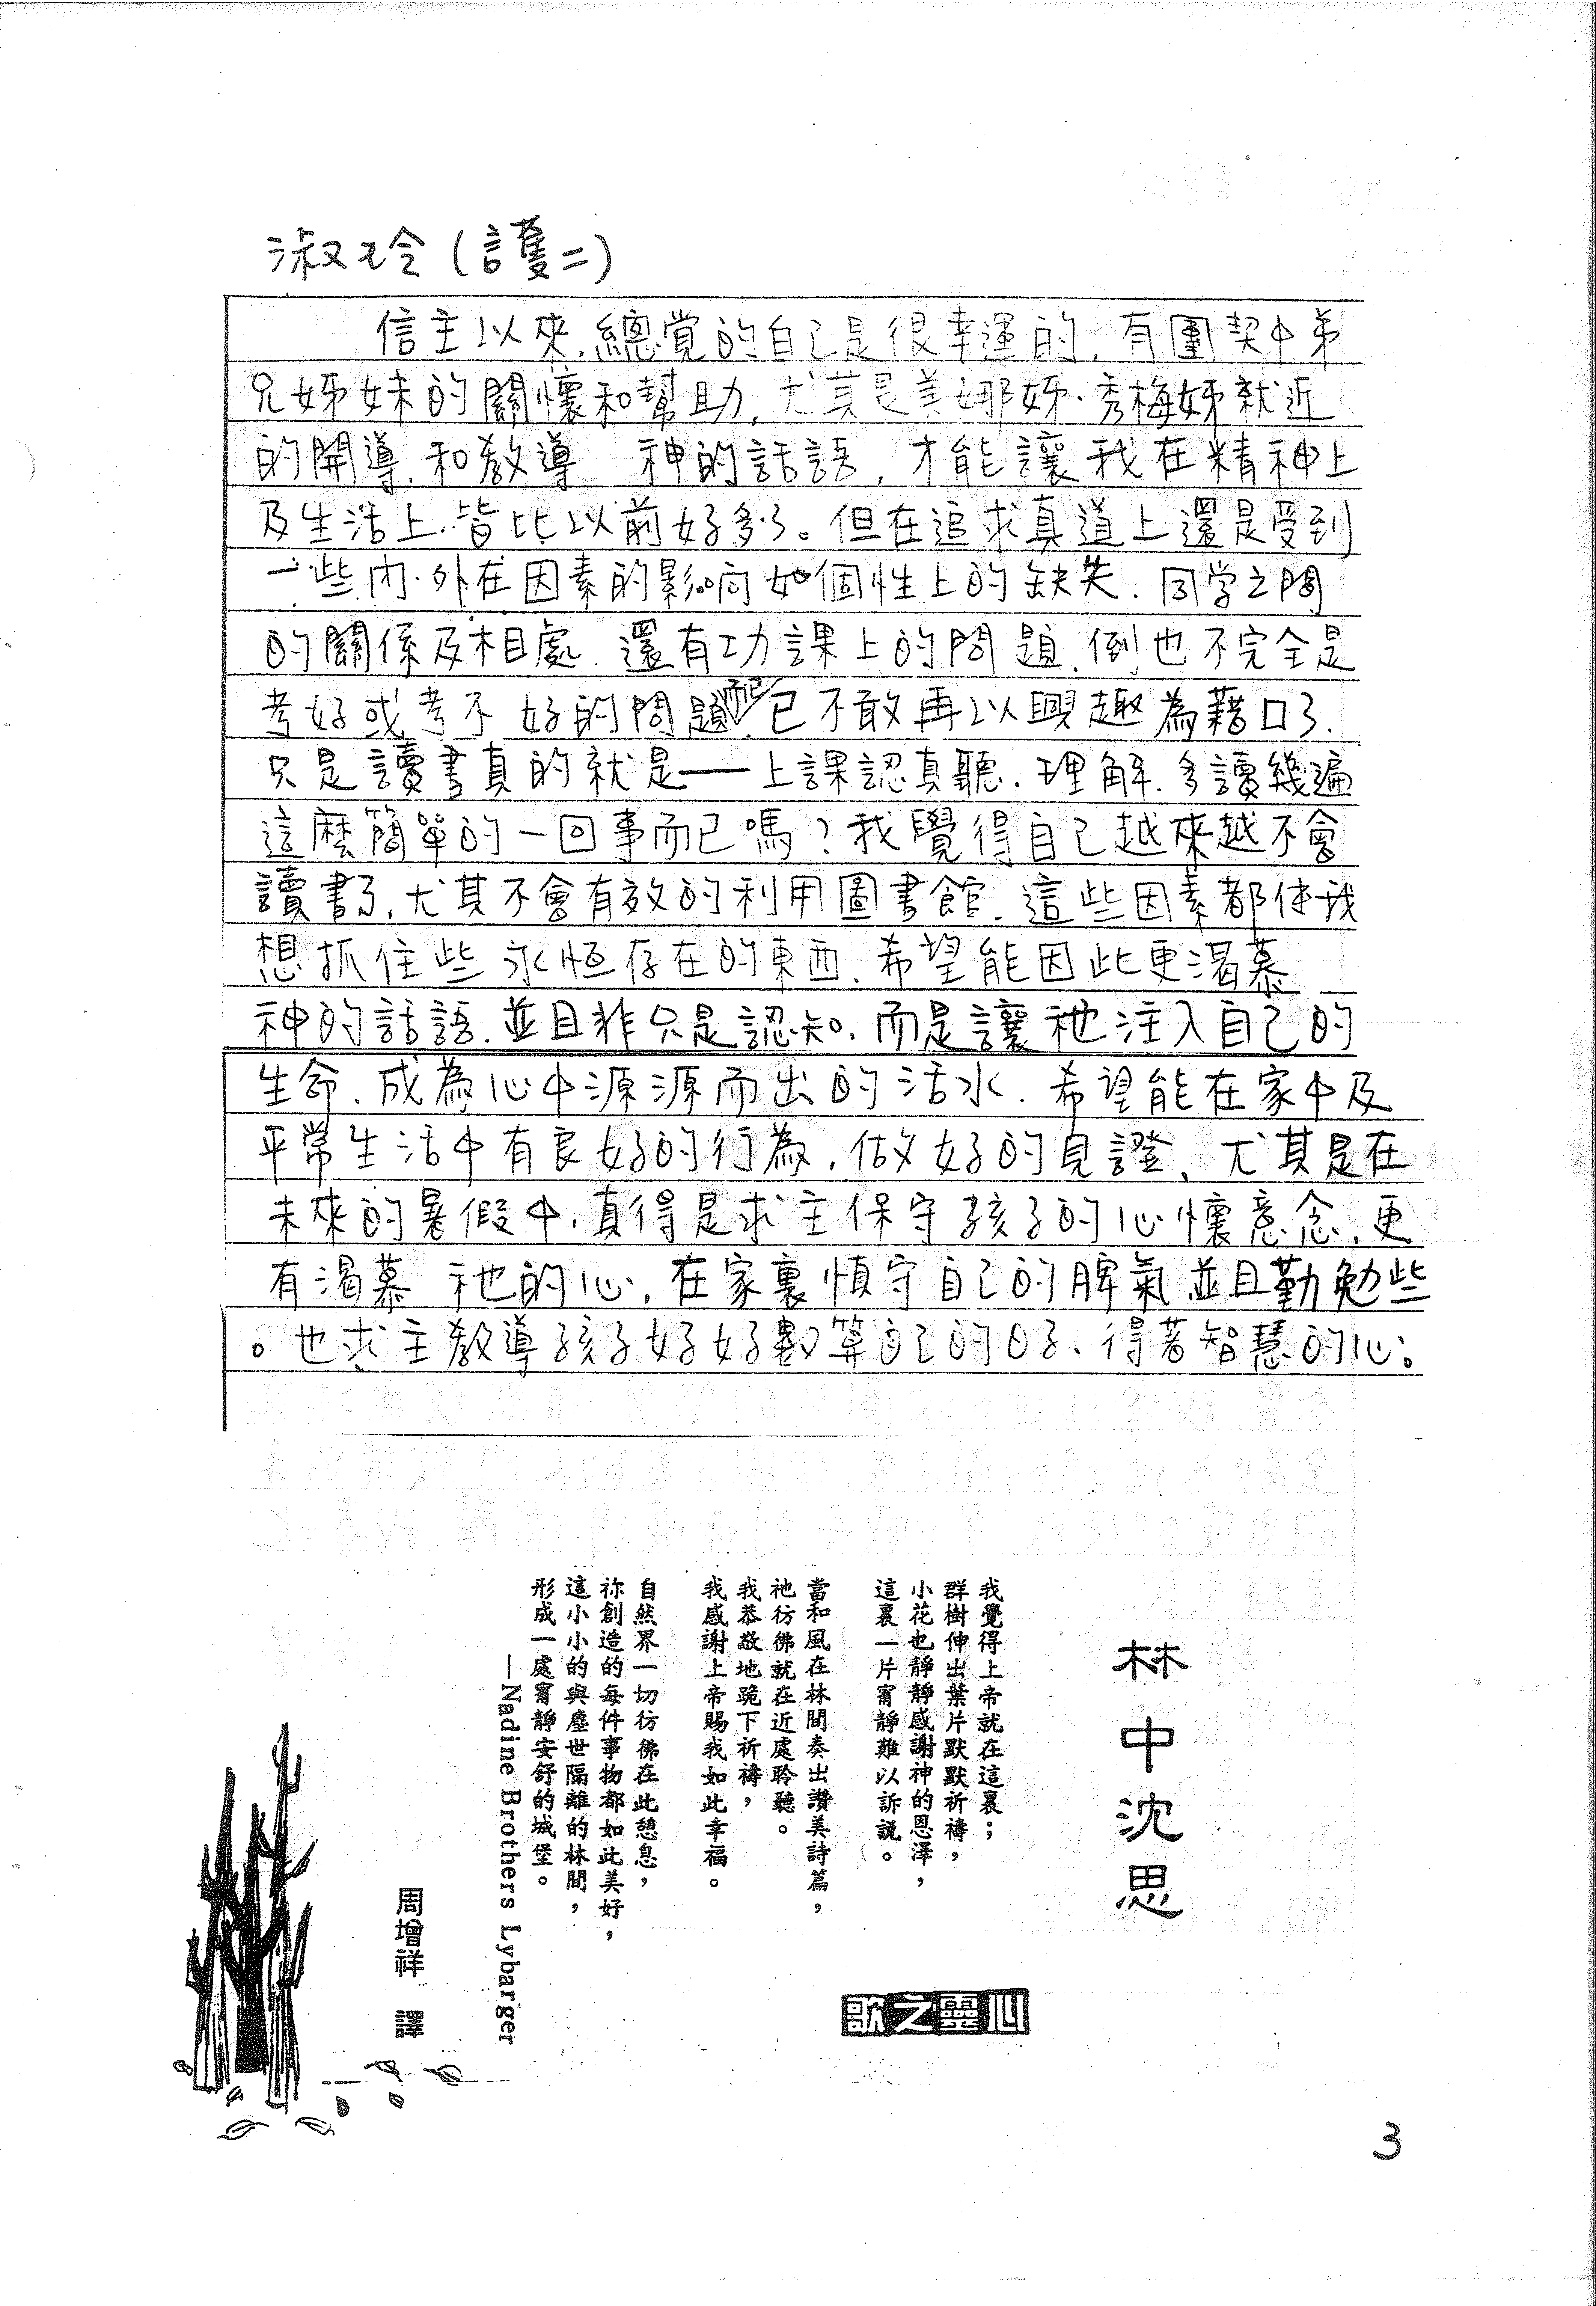 淑玲(護二)
信主以來,總覺的自己是很幸運的,有團契中弟
兄姊妹的關懷和幫助,尤其是美娜姊.秀梅姊就近
的開導.和教導 神的話語,才能讓我在精神上
及生活上.皆比以前好多了。但在追求真道上還是受到
一些內.外在因素的影响如個性上的缺失.同学之間
的關係及相處.還有功課上的問題,倒也不完全是
考好或考不好的問題而已,已不敢再以興趣為藉口了.
只是讀書真的就是──上課認真聽.理解.多讀幾遍
這麼簡單的一回事而已嗎?我覺得自己越來越不會
讀書了,尤其不會有效的利用圖書館.這些因素都使我
想抓住些永恒存在的東西.希望能因此更渴慕
神的話語.並且非只是認知.而是讓祂注入自己的
生命.成為心中源源而出的活水.希望能在家中及
平常生活中有良好的行為,做好的見證、尤其是在
未來的暑假中,真得是求主保守孩子的心懷意念,更
有渴慕 祂的心,在家裏慎守自己的脾氣並且勤勉些
。也求主教導孩子好好數算自己的日子、得著智慧的心。
林中沈思
心靈之歌
我覺得上帝就在這裏;
群樹伸出葉片默默祈禱,
小花也靜靜感謝神的恩澤,
這裏一片甯靜難以訴說。
當和風在林間奏出讚美詩篇,
祂彷彿就在近處聆聽。
我恭敬地跪下祈禱,
我感謝上帝賜我如此幸福。
自然界一切彷彿在此憩息,
祢創造的每件事物都如此美好,
這小小的與塵世隔離的林間,
形成一處甯靜安舒的城堡。
—Nadine Brothers Lybarger
周增祥 譯
3